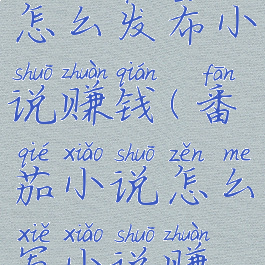 怎么发布小
shuō zhuàn qián fān
说赚钱(番
qié xiǎo shuō zěn me
茄小说怎么
xiě xiǎo shuō zhuàn
写小说赚